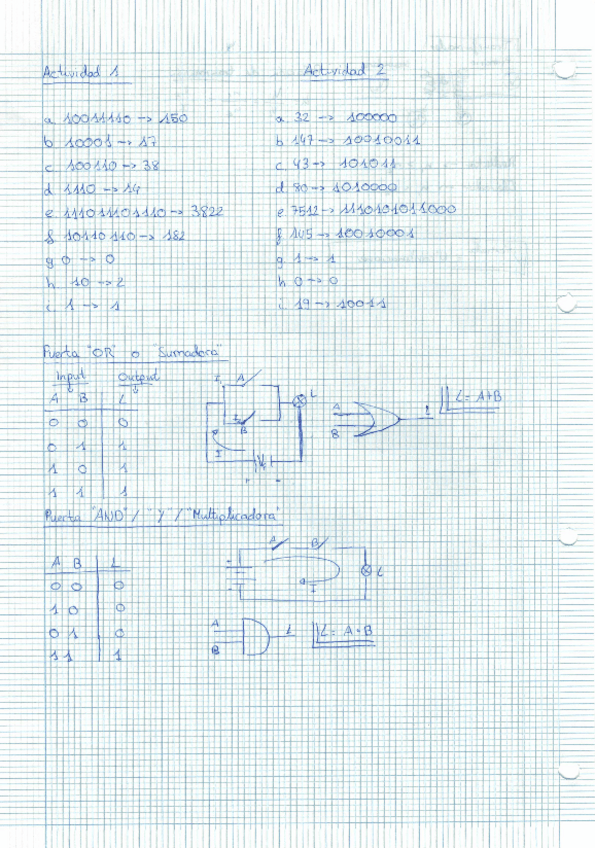 Actividad 1
a 10011110 -> 150
b 10001 -> 17
c 100110 -> 38
d 1110 -> 14
e 111011101110 -> 3822
f 10110110 -> 182
g 0 -> 0
h 10 -> 2
i 1 -> 1
Actividad 2
a 32 -> 100000
b 147 -> 10010011
c 43 -> 101011
d 80 -> 1010000
e 7512 -> 1110101011000
f 145 -> 10010001
g 1 -> 1
h 0 -> 0
i 19 -> 10011
Puerta "OR" o "Sumadora"
Input Output
A B L
0 0 0
0 1 1
1 0 1
1 1 1
I₁ A
I₂ B
I
L
+ -
A
B
L
L = A+B
Puerta "AND" / "Y" / "Multiplicadora"
A B L
0 0 0
1 0 0
0 1 0
1 1 1
A B
+
-
I
L
A
B
L
L = A · B